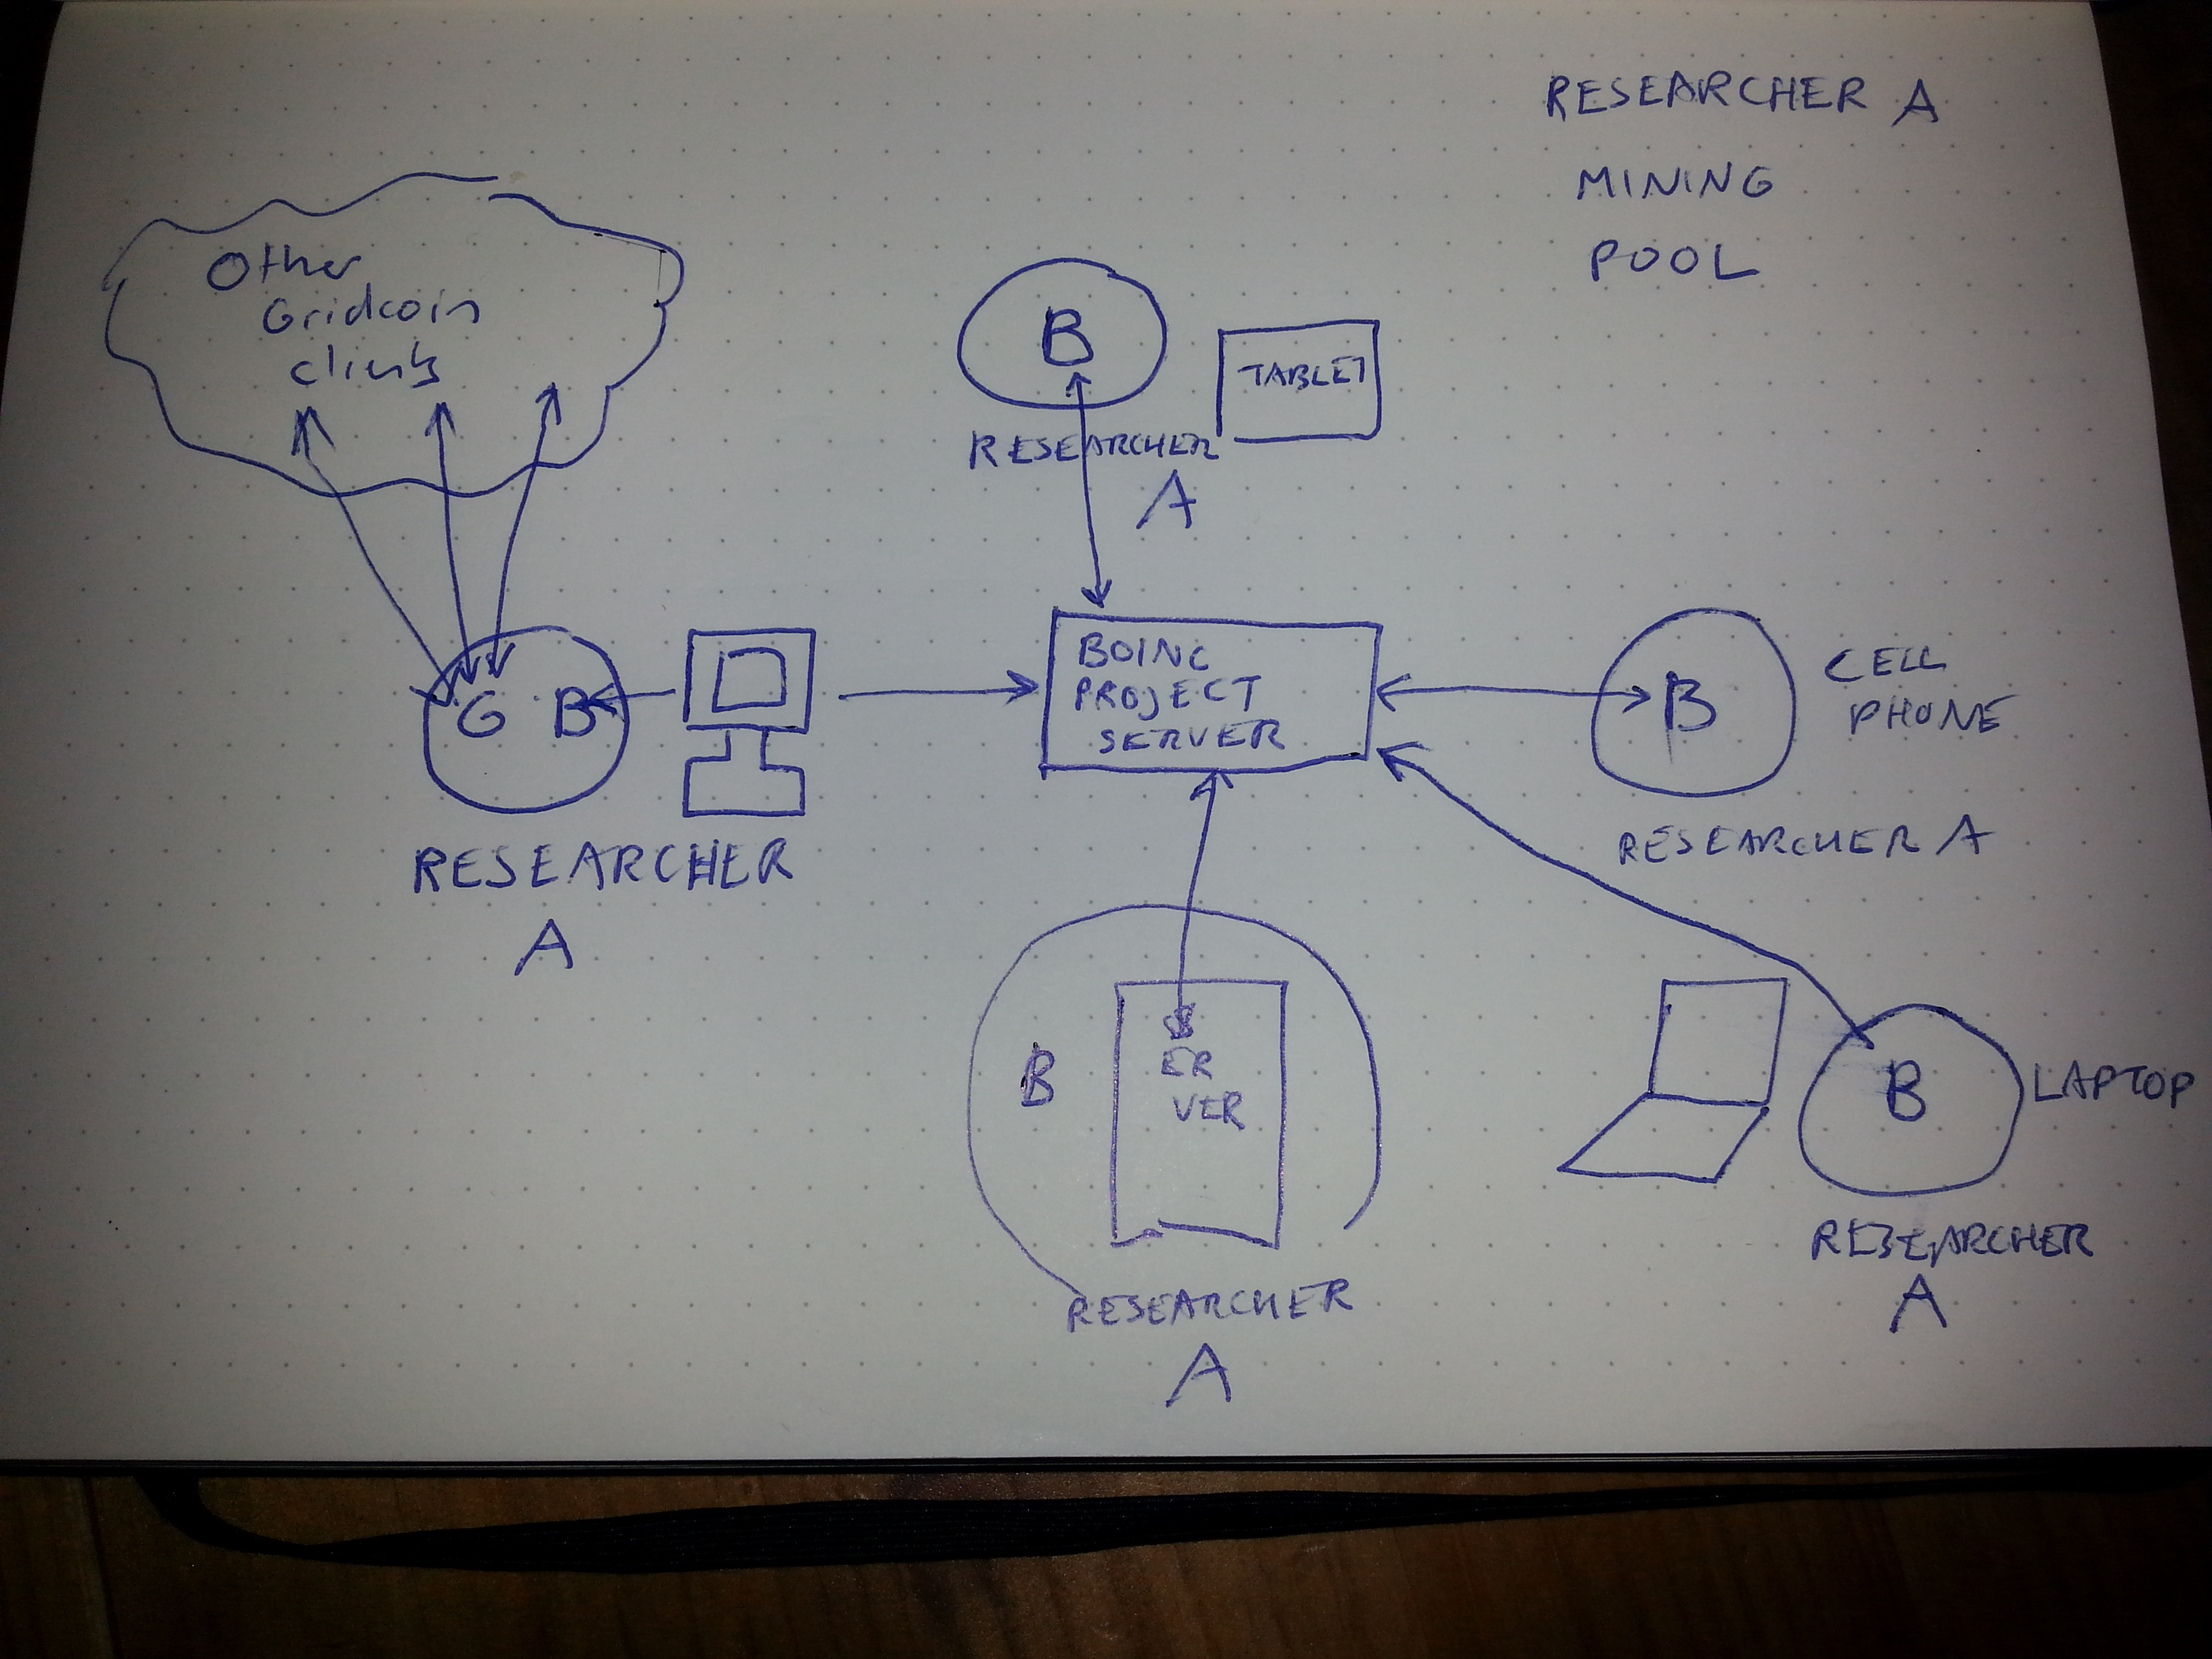 RESEARCHER A
MINING
POOL
Other
Gridcoin
clients
B
TABLET
RESEARCHER
A
G B
RESEARCHER
A
BOINC
PROJECT
SERVER
B
CELL
PHONE
RESEARCHER A
B
S
ER
VER
RESEARCHER
A
B
LAPTOP
RESEARCHER
A